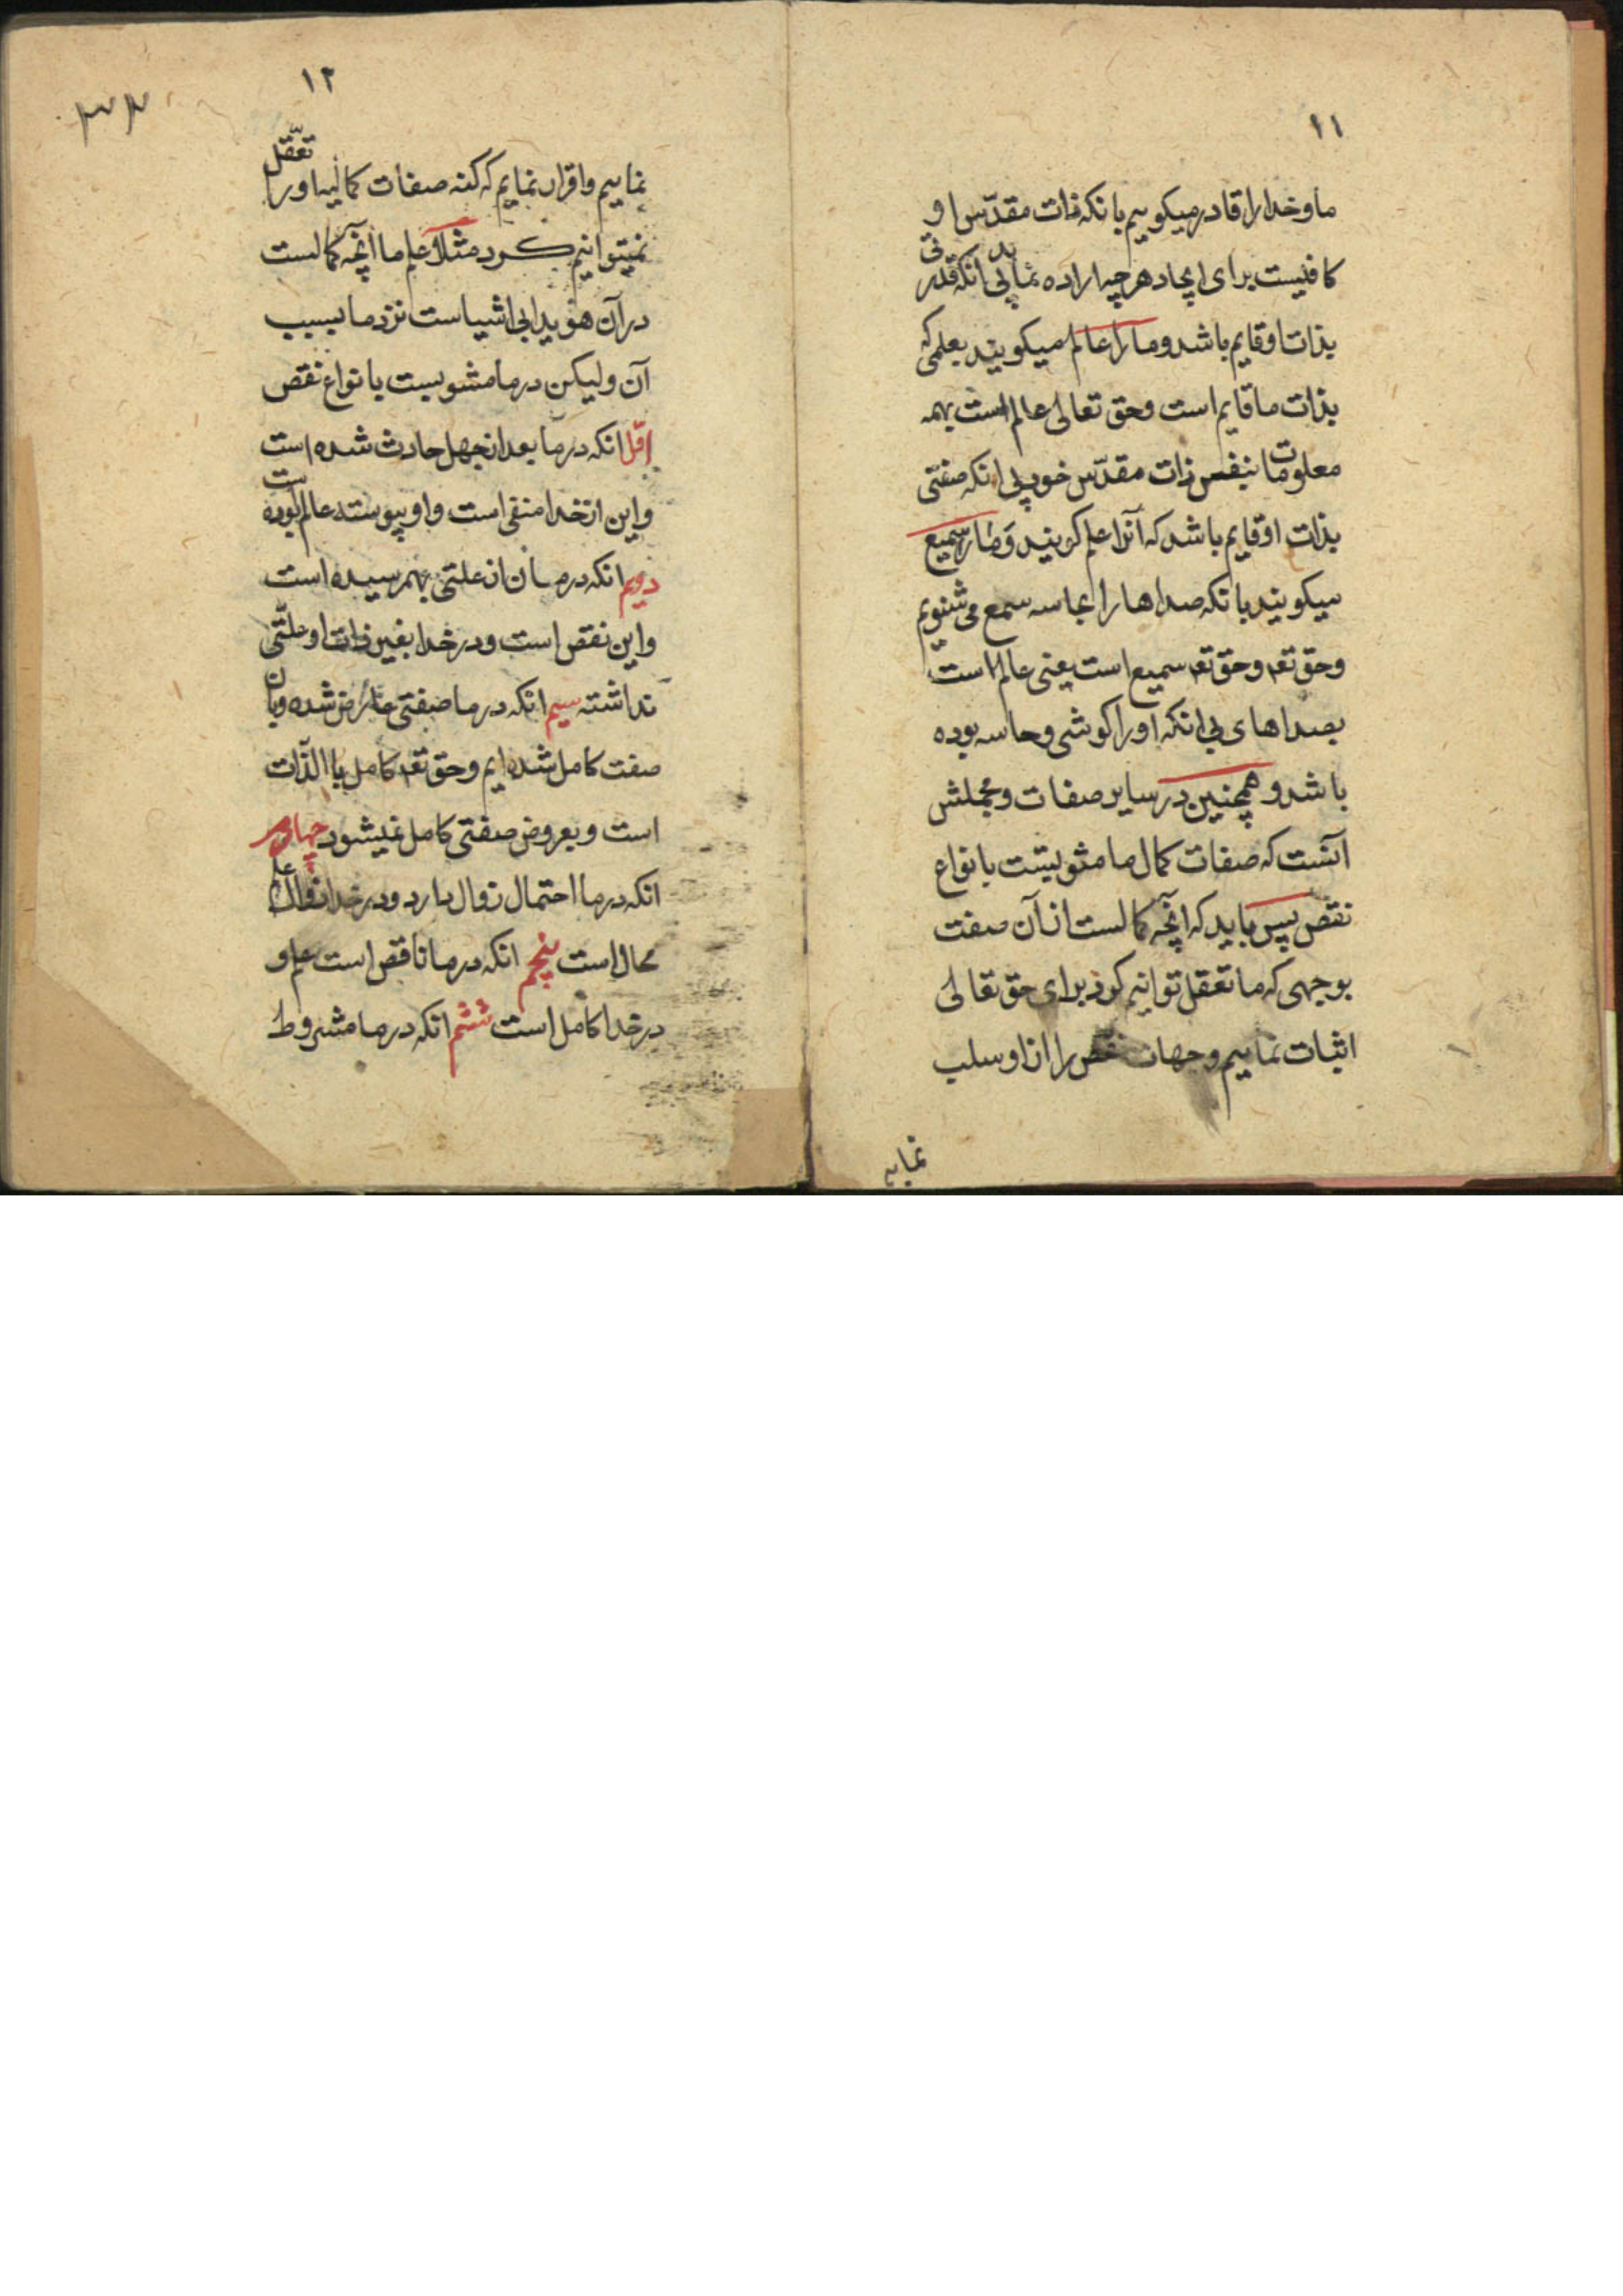 ١١
ما و خدا را قادر میکوییم بانکه ذات مقدّس او
کافیست برای ایجاد هرچه اراده نماید بی انکه قدرتی
بذات او قایم باشد و ما را عالم میکویند بعلمی که
بذات ما قایم است و حق تعالی عالم است بهمه
معلومات بنفس ذات مقدّس خود بی انکه صفتی
بذات او قایم باشد که آنرا علم کویند و ما را سمیع
میکویند بانکه صداها را بحاسه سمع می شنویم
و حق تعه و حق تعه سمیع است یعنی عالم است
بصداهای بی انکه او را کوشی و حاسه بوده
باشد و همچنین در سایر صفات و مجملش
آنست که صفات کمال ما مشوبیست بانواع
نقص پس باید که انچه کمالست از آن صفت
بوجهی که ما تعقل توانیم کرد برای حق تعالی
اثبات نماییم و جهات نقص را از او سلب
نمایم
١٢
٣٣
نماییم و اقرار نمایم که کنه صفات کمالیه او را تعقّل
نمیتوانیم کرد مثلا و علم ما انچه کمالست
در آن هویدایی اشیاست نزد ما بسبب
آن ولیکن در ما مشوبیست بانواع نقص
اوّل انکه در ما بعد از جهل حادث شده است
و این از خدا منفی است و او پیوسته عالم بوده است
دویم انکه در ما از علتی بهم رسیده است
و این نقص است و در خدا بغیر ذات او علّتی
نداشته سیم انکه در ما صفتی عارض شده و بآن
صفت کامل شده ایم و حق تعه کامل باالذّات
است و بعروض صفتی کامل نمیشود چهارم
انکه در ما احتمال زوال دارد و در خدا زوال علم
محال است پنجم انکه در ما ناقص است علم و
در خدا کامل است ششم انکه در ما مشروط